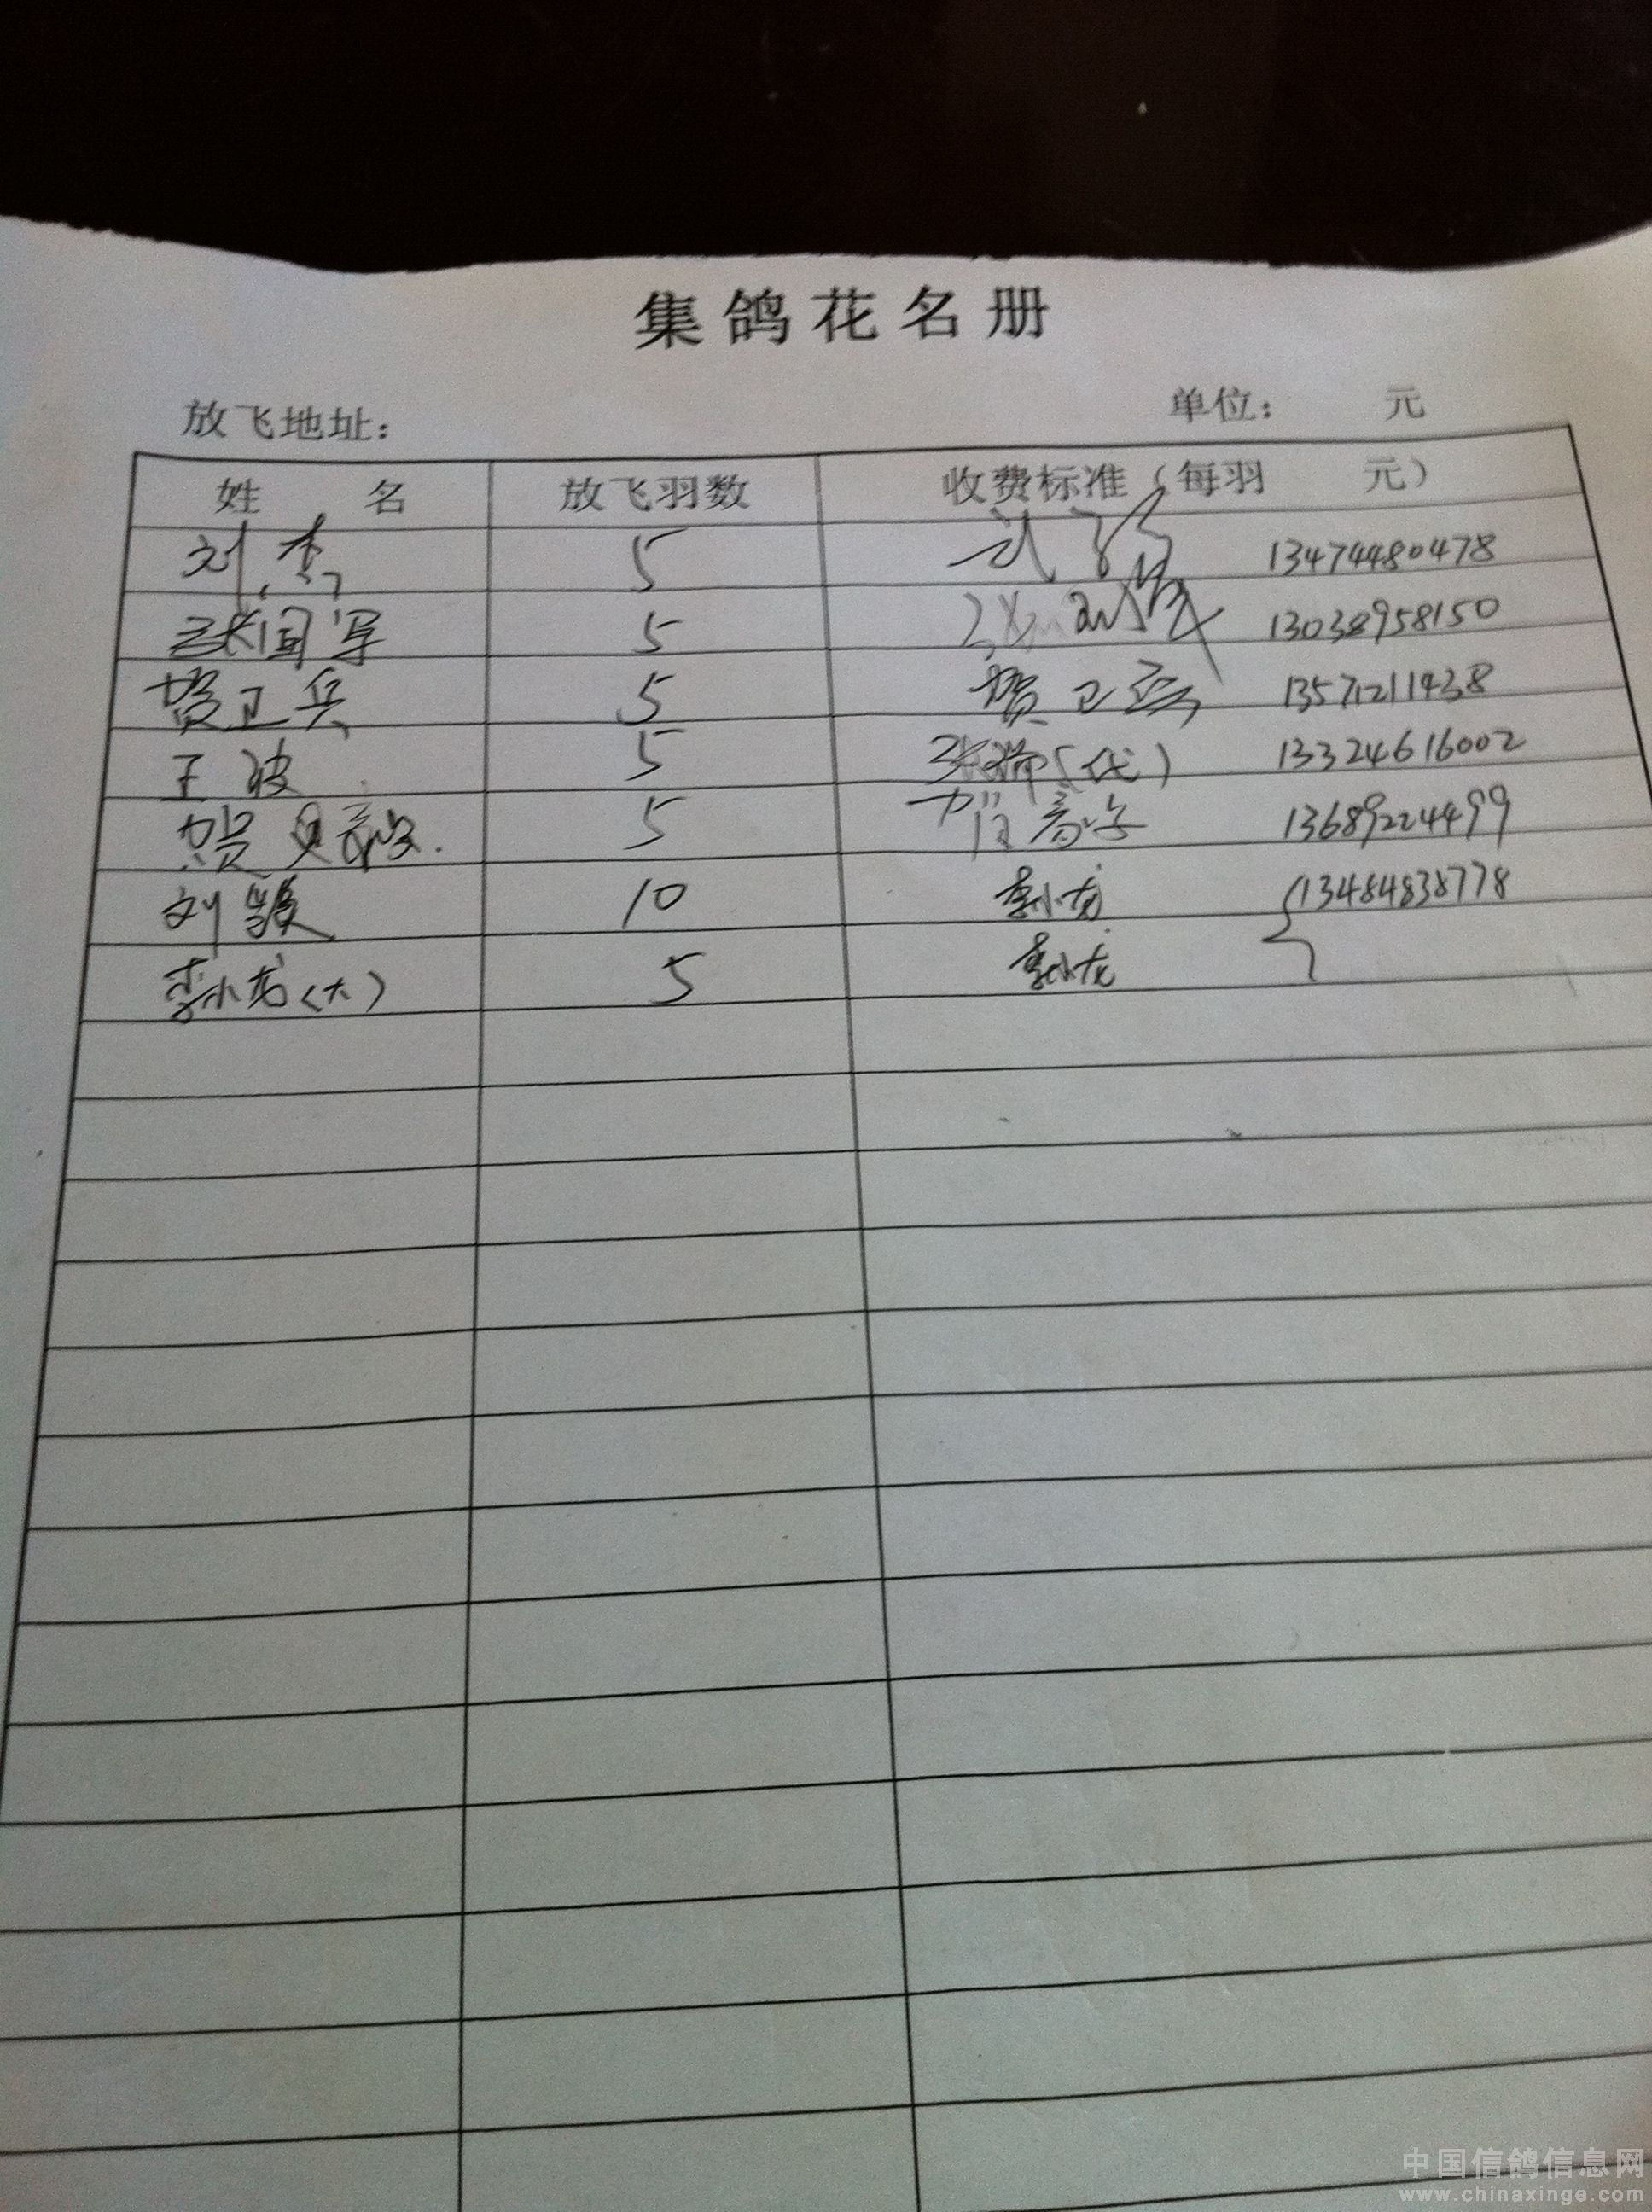 集鸽花名册
放飞地址： 单位： 元
姓 名 放飞羽数 收费标准（每羽 元）
刘杰 5 13474480478
张国军 5 13038958150
贺卫兵 5 贺卫兵 13571211438
王波 5 张瑞（代） 13324616002
贺 5 13689224499
刘毅 10 李小龙 13484838778
李小龙（大） 5 李小龙
中国信鸽信息网
www.chinaxinge.com